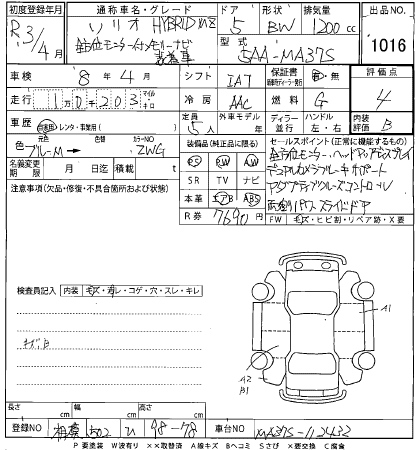 初度登録年月 通称車名・グレード ドア 形状 排気量 出品NO.
R3/4月 ソリオ HYBRID MZ 5 BW 1200cc 1016
全方位モニター付メモリーナビ装着車
型式 5AA-MA37S
車検 8年4月 シフト IAT 保証書 有・無 評価点 4
走行 10203 マイル キロ 冷房 AAC 燃料 G
車歴 自家用 レンタ・事業用( ) 定員 5人 外車モデル 年 ディーラー 並行 ハンドル 左・右 内装評価 B
色 元色 ブルーM→ 色替 カラーNO. ZWG
装備品(純正品に限る) セールスポイント(正常に機能するもの)
PS PW AW
全方位モニター、ヘッドアップディスプレイ
名義変更期限 月 迄 積載 t SR TV ナビ
デュアルカメラブレーキサポート
注意事項(欠品・修復・不具合箇所および状態)
本革 エアB ABS
アダプティブクルーズコントロール
両側パワースライドドア
R券 7690円
FW キズ・ヒビ割・リペア跡・X要
検査員記入 内装 キズ・汚レ・コゲ・穴・スレ・キレ
A1
A2
B1
長さ cm 幅 cm 高さ cm
登録NO 相模 502 ひ 98-78 車台NO MA37S-112432
P 要塗装 W波有り ××取替済 A線キズ Bヘコミ Sさび ×要交換 C腐食